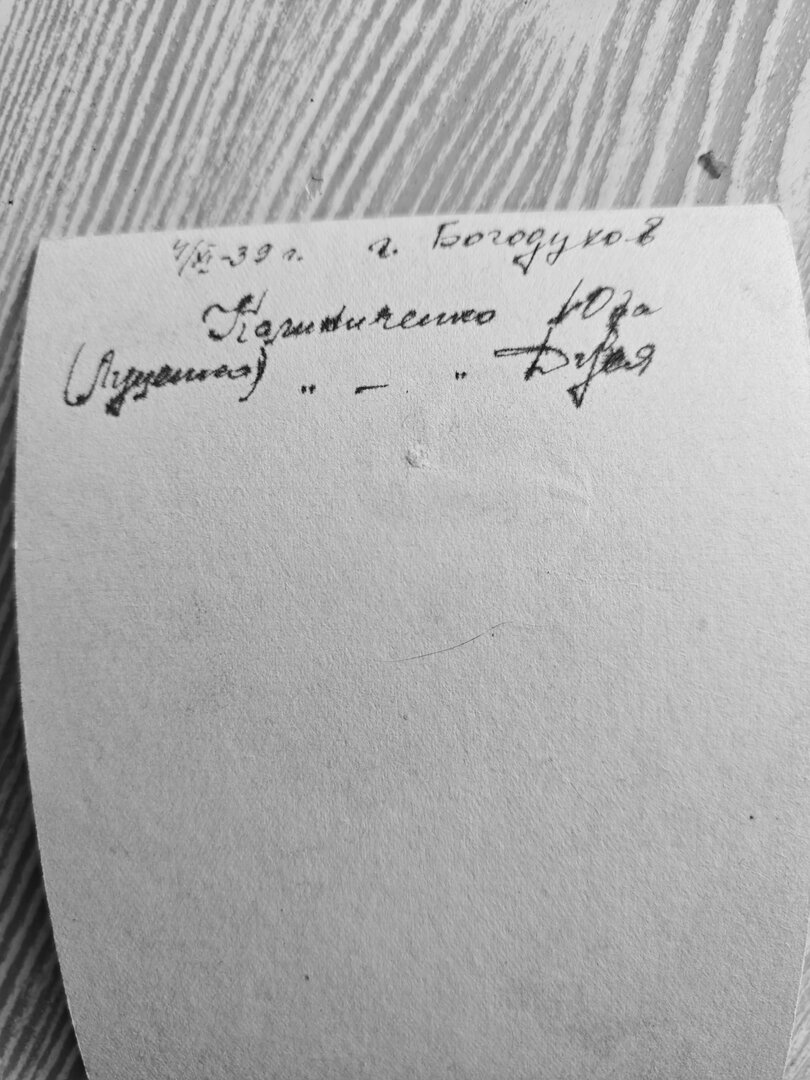 4/XI-39 г. г. Богодухов
Калиниченко Юра
(Луценко) " — "